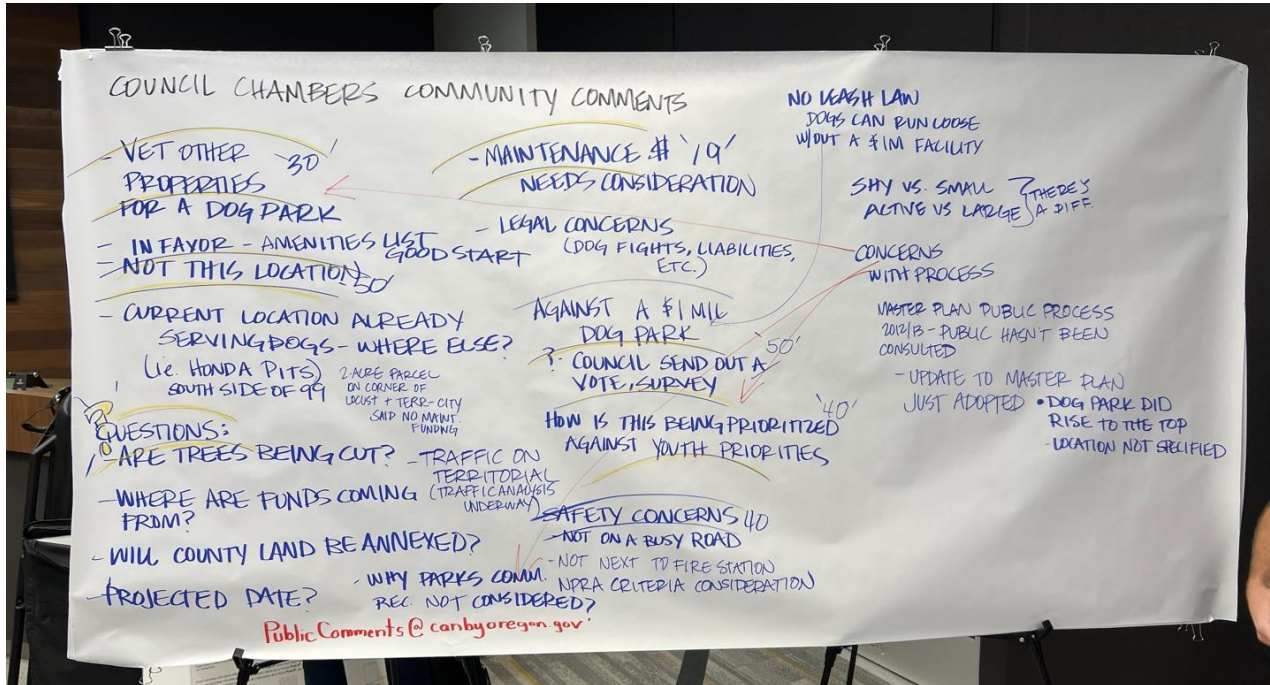 COUNCIL CHAMBERS COMMUNITY COMMENTS
- VET OTHER '30'
PROPERTIES
FOR A DOG PARK
- IN FAVOR - AMENITIES LIST
GOOD START
- NOT THIS LOCATION 50'
- CURRENT LOCATION ALREADY
SERVING DOGS - WHERE ELSE?
(ie. HONDA PITS)
SOUTH SIDE OF 99
2-ACRE PARCEL
ON CORNER OF
LOCUST + TERR-CITY
SAID NO MAINT.
FUNDING
QUESTIONS:
ARE TREES BEING CUT?
- TRAFFIC ON
TERRITORIAL
(TRAFFIC ANALYSIS
UNDERWAY)
- WHERE ARE FUNDS COMING
FROM?
- WILL COUNTY LAND BE ANNEXED?
- PROJECTED DATE?
- WHY PARKS COMM.
REC. NOT CONSIDERED?
PublicComments@canbyoregon.gov
- MAINTENANCE $ '19'
NEEDS CONSIDERATION
- LEGAL CONCERNS
(DOG FIGHTS, LIABILITIES,
ETC.)
AGAINST A $1 MIL
DOG PARK
? COUNCIL SEND OUT A '50'
VOTE, SURVEY
HOW IS THIS BEING PRIORITIZED '40'
AGAINST YOUTH PRIORITIES
SAFETY CONCERNS 40
- NOT ON A BUSY ROAD
- NOT NEXT TO FIRE STATION
NPRA CRITERIA CONSIDERATION
NO LEASH LAW
DOGS CAN RUN LOOSE
W/OUT A $1M FACILITY
SHY VS. SMALL
ACTIVE VS LARGE
THERE'S
A DIFF.
CONCERNS
WITH PROCESS
MASTER PLAN PUBLIC PROCESS
2012/13 - PUBLIC HASN'T BEEN
CONSULTED
- UPDATE TO MASTER PLAN
JUST ADOPTED
• DOG PARK DID
RISE TO THE TOP
- LOCATION NOT SPECIFIED